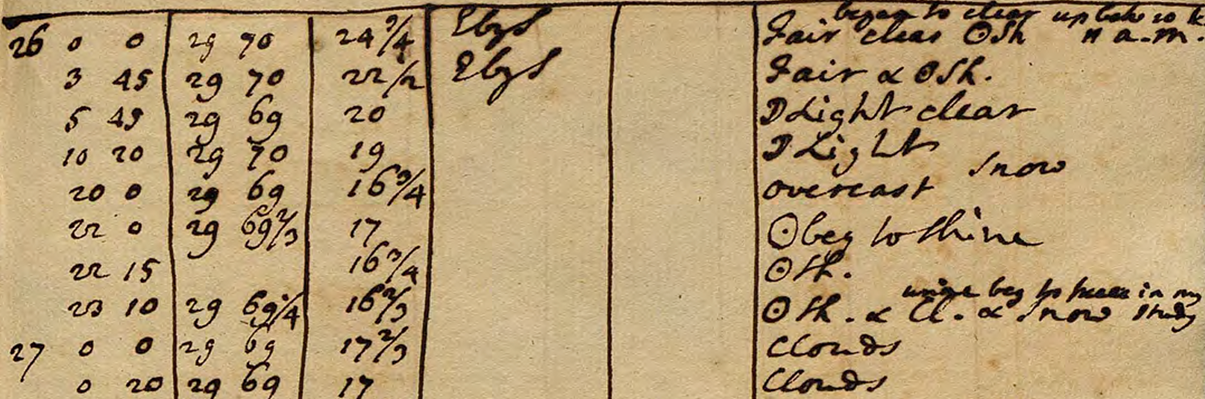 began to clear up betw 10 &
26 0 0 29 70 24 3/4 EbyS Fair clear ☉Sh 11 a.m.
3 45 29 70 22 1/2 EbyS Fair & ☉Sh.
5 45 29 69 20 ☽Light clear
10 20 29 70 19 ☽Light
Snow
20 0 29 69 16 3/4 overcast
22 0 29 69 2/3 17 ☉ beg to Shine
22 15 16 3/4 ☉Sh.
urine beg to freeze in my
23 10 29 69 1/4 16 2/3 ☉Sh. & Cl. & Snow Study
27 0 0 29 69 17 2/3 Clouds
0 20 29 69 17 Clouds